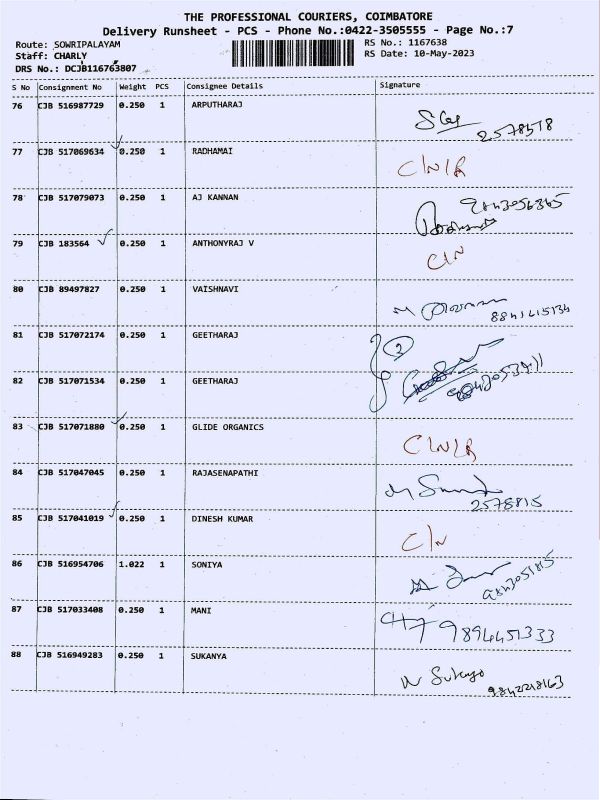 THE PROFESSIONAL COURIERS, COIMBATORE
Delivery Runsheet - PCS - Phone No.:0422-3505555 - Page No.:7
Route: SOWRIPALAYAM RS No.: 1167638
Staff: CHARLY RS Date: 10-May-2023
DRS No.: DCJB116763807
S No Consignment No Weight PCS Consignee Details Signature
76 CJB 516987729 0.250 1 ARPUTHARAJ
2578518
77 CJB 517069634 0.250 1 RADHAMAI C/N/R
78 CJB 517079073 0.250 1 AJ KANNAN
79 CJB 183564 0.250 1 ANTHONYRAJ V C/N
80 CJB 89497827 0.250 1 VAISHNAVI
81 CJB 517072174 0.250 1 GEETHARAJ 2
82 CJB 517071534 0.250 1 GEETHARAJ
83 CJB 517071880 0.250 1 GLIDE ORGANICS C/N/R
84 CJB 517047045 0.250 1 RAJASENAPATHI
2578815
85 CJB 517041019 0.250 1 DINESH KUMAR C/N
86 CJB 516954706 1.022 1 SONIYA
87 CJB 517033408 0.250 1 MANI 9894451333
88 CJB 516949283 0.250 1 SUKANYA
9842218163